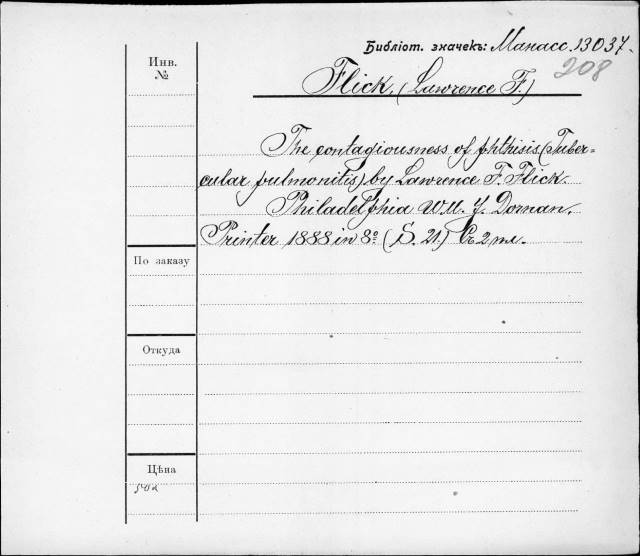 Библіот. значекъ: Манасс. 13037.
208
Инв.
№
Flick (Lawrence F.)
The contagiousness of phthisis (Tuber=
cular pulmonitis) by Lawrence F. Flick.
Philadelphia WM. J. Dornan.
Printer 1888 in 8º. (S. 21.) Съ 2 тл.
По заказу
Откуда
Цѣна